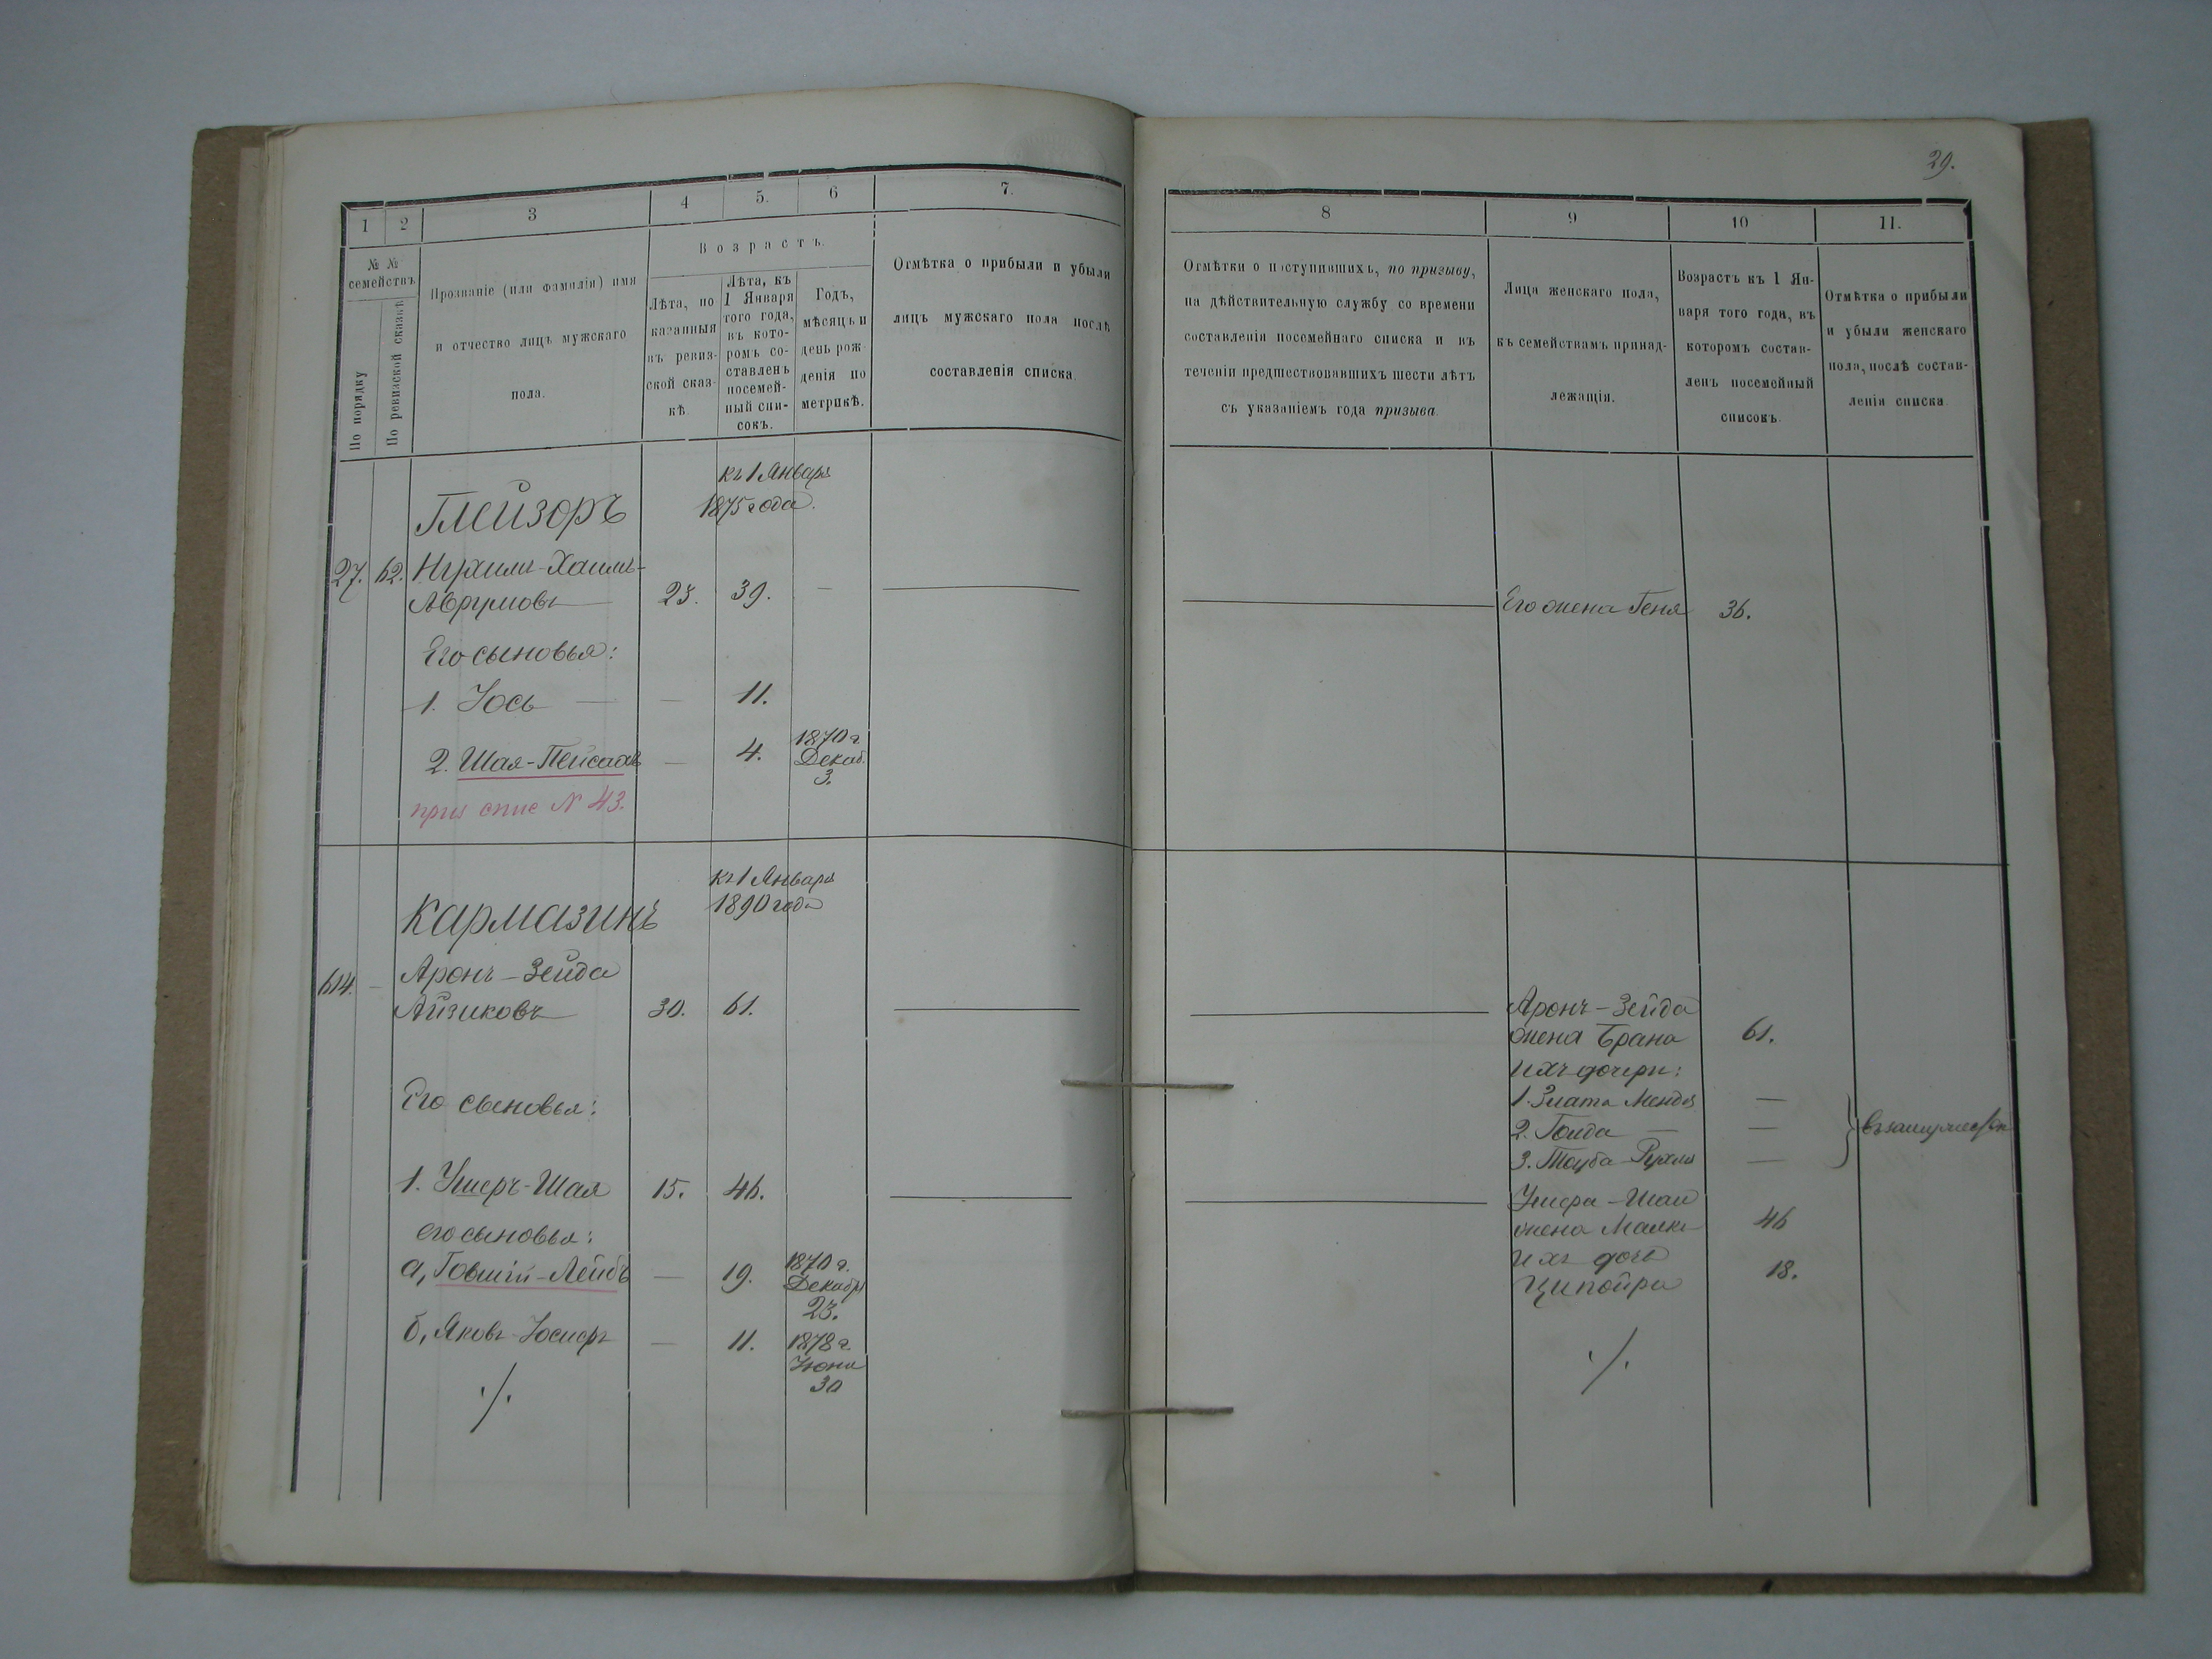 29.
1 2 3 4 5. 6 7.
№ №
семействъ
По порядку
По ревизской сказкѣ
Прозваніе (или фамилія) имя
и отчество лицъ мужскаго
пола.
Возрастъ.
Лѣта, по
казанныя
въ ревиз-
ской сказ-
кѣ.
Лѣта, къ
1 Января
того года,
въ кото-
ромъ со-
ставленъ
посемей-
ный спи-
сокъ.
Годъ,
мѣсяцъ и
день рож
денія по
метрикѣ.
Отмѣтка о прибыли и убыли
лицъ мужскаго пола послѣ
составленія списка.
къ 1 Января
1875 года.
Глейзоръ
27. 62. Нухимъ-Хаимъ-
Аврумовъ 23. 39. —
Его сыновья:
1. Іось — — 11.
2. Шая-Пейсахъ — 4. 1870 г.
Декаб.
3.
приз спис № 43.
къ 1 Января
1890 года
Кармазинъ
614. — Аронъ-Зейда
Айзиковъ 30. 61.
Его сыновья:
1. Ушеръ-Шая 15. 46.
его сыновья:
а, Говшій-Лейбъ — 19. 1870 г.
Декабр
23.
б, Яковъ-Іосифъ — 11. 1878 г.
Іюня
30
·/.
8 9 10 11.
Отмѣтки о поступившихъ, по призыву,
на дѣйствительную службу со времени
составленія посемейнаго списка и въ
теченіи предшествовавшихъ шести лѣтъ
съ указаніемъ года призыва.
Лица женскаго пола,
къ семействамъ принад-
лежащія.
Возрастъ къ 1 Ян-
варя того года, въ
которомъ состав-
ленъ посемейный
списокъ.
Отмѣтка о прибыли
и убыли женскаго
пола, послѣ состав-
ленія списка
Его жена Геня 36.
Аронъ-Зейда
жена Брана 61.
Ихъ дочери:
1. Злата —
2. Гольда — —
3. Тауба-Рухля —
Ушера-Шаи
жена Малка 46
Ихъ дочь
Ципойра 18.
·/.